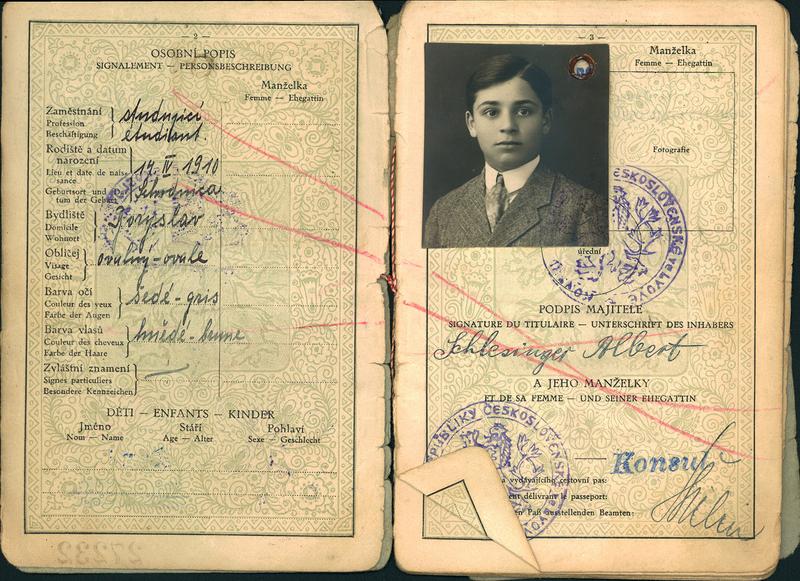 - 2 -
OSOBNÍ POPIS
SIGNALEMENT — PERSONSBESCHREIBUNG
Manželka
Femme — Ehegattin
Zaměstnání
Profession
Beschäftigung
studující
etudiant.
Rodiště a datum
narození
Lieu et date de nais-
sance
Geburtsort und Da-
tum der Geburt
14. IV 1910
Schodnica
Bydliště
Domicile
Wohnort
Boryslav
Obličej
Visage
Gesicht
oválný - ovale
Barva očí
Couleur des yeux
Farbe der Augen
šedé - gris
Barva vlasů
Couleur des cheveux
Farbe der Haare
hnědé - brune
Zvláštní znamení
Signes particuliers
Besondere Kennzeichen
DĚTI — ENFANTS — KINDER
Jméno
Nom — Name
Stáří
Age — Alter
Pohlaví
Sexe — Geschlecht
27232
- 3 -
Manželka
Femme — Ehegattin
Fotografie
úřední
ČESKOSLOVENSKÉ
PODPIS MAJITELE
SIGNATURE DU TITULAIRE — UNTERSCHRIFT DES INHABERS
Schlesinger Albert
A JEHO MANŽELKY
ET DE SA FEMME — UND SEINER EHEGATTIN
REPUBLIKY ČESKOSLOVENSKÉ
Konsul
a vydávajícího cestovní pas:
ent délivrant le passeport:
en Paß ausstellenden Beamten: